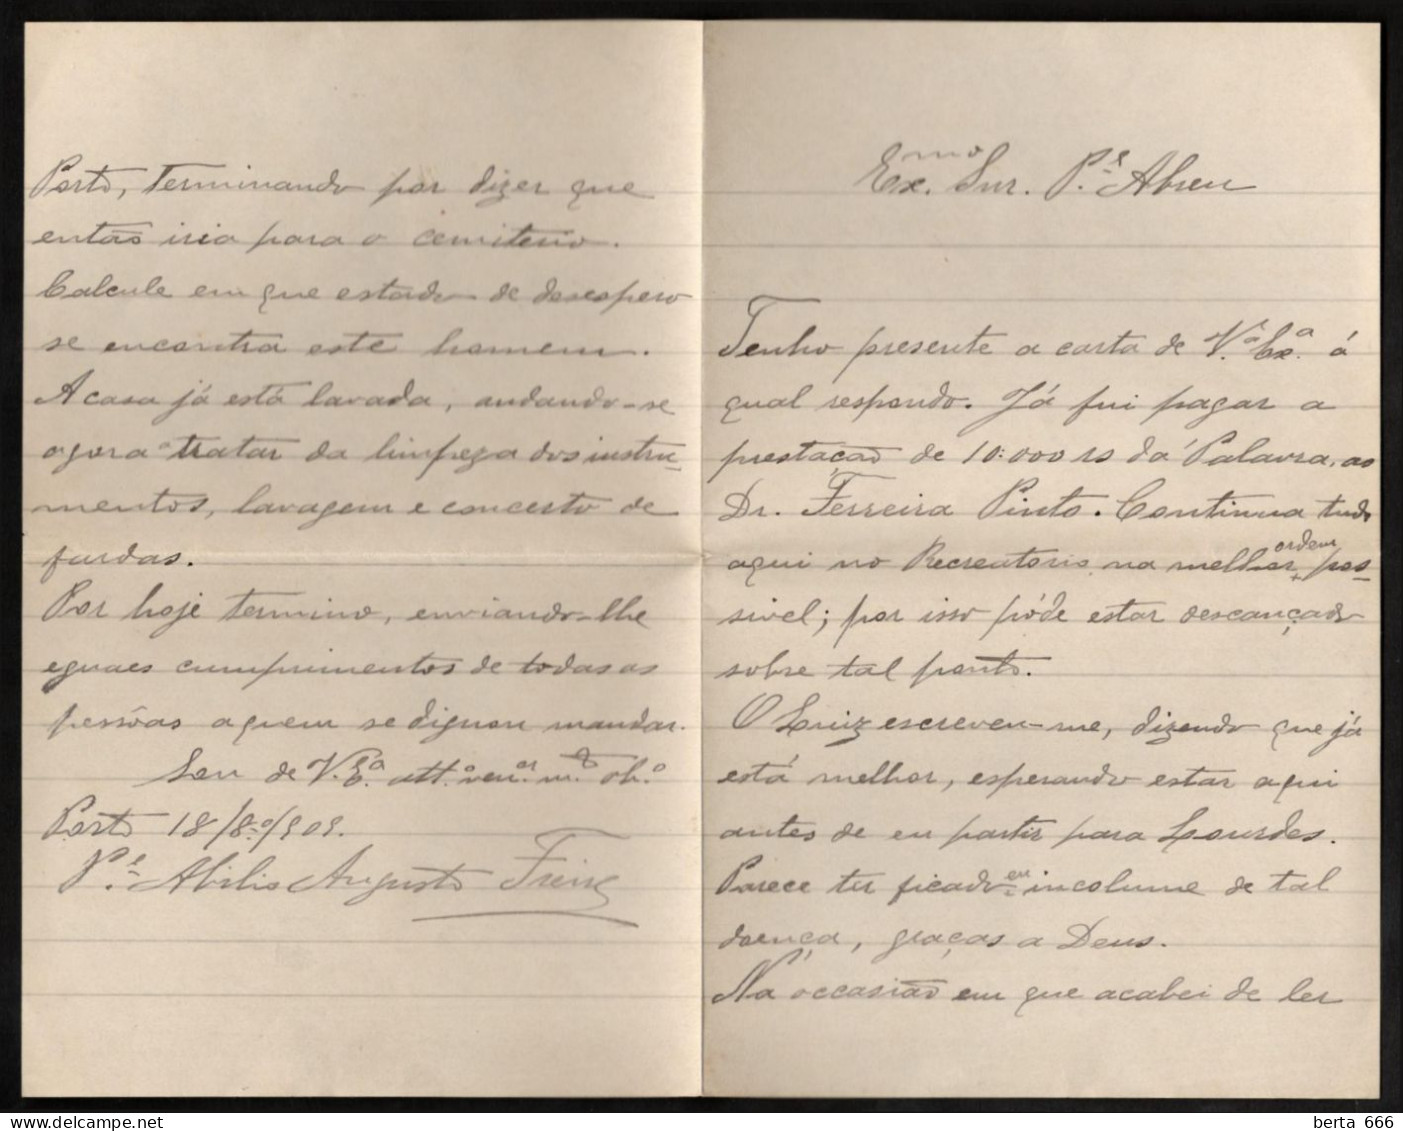 Ex.mo Snr. P.e Abreu
Tenho presente a carta de V.a Ex.a á
qual respondo. Já fui pagar a
prestação de 10:000 rs da Palavra, ao
Dr. Ferreira Pinto. Continua tudo
aqui no Recreatorio, na melhor ordem pos-
sivel; por isso póde estar descançado
sobre tal ponto.
O Luiz escreveu-me, dizendo que já
está melhor, esperando estar aqui
antes de eu partir para Lourdes.
Parece ter ficado eu incolume de tal
doença, graças a Deus.
Na occasião em que acabei de ler
Porto, terminando por dizer que
então iria para o cemiterio.
Calcule em que estado de desespero
se encontra este homem.
A casa já está lavada, andando-se
agora a tratar da limpeza dos instru-
mentos, lavagem e concerto de
fardas.
Por hoje termino, enviando-lhe
eguaes cumprimentos de todas as
pessôas a quem se dignou mandar.
Sou de V. E.a att.o ven.or m.to ob.o
Porto 18/8.o/909.
P.e Abilio Augusto Freire
berta 666